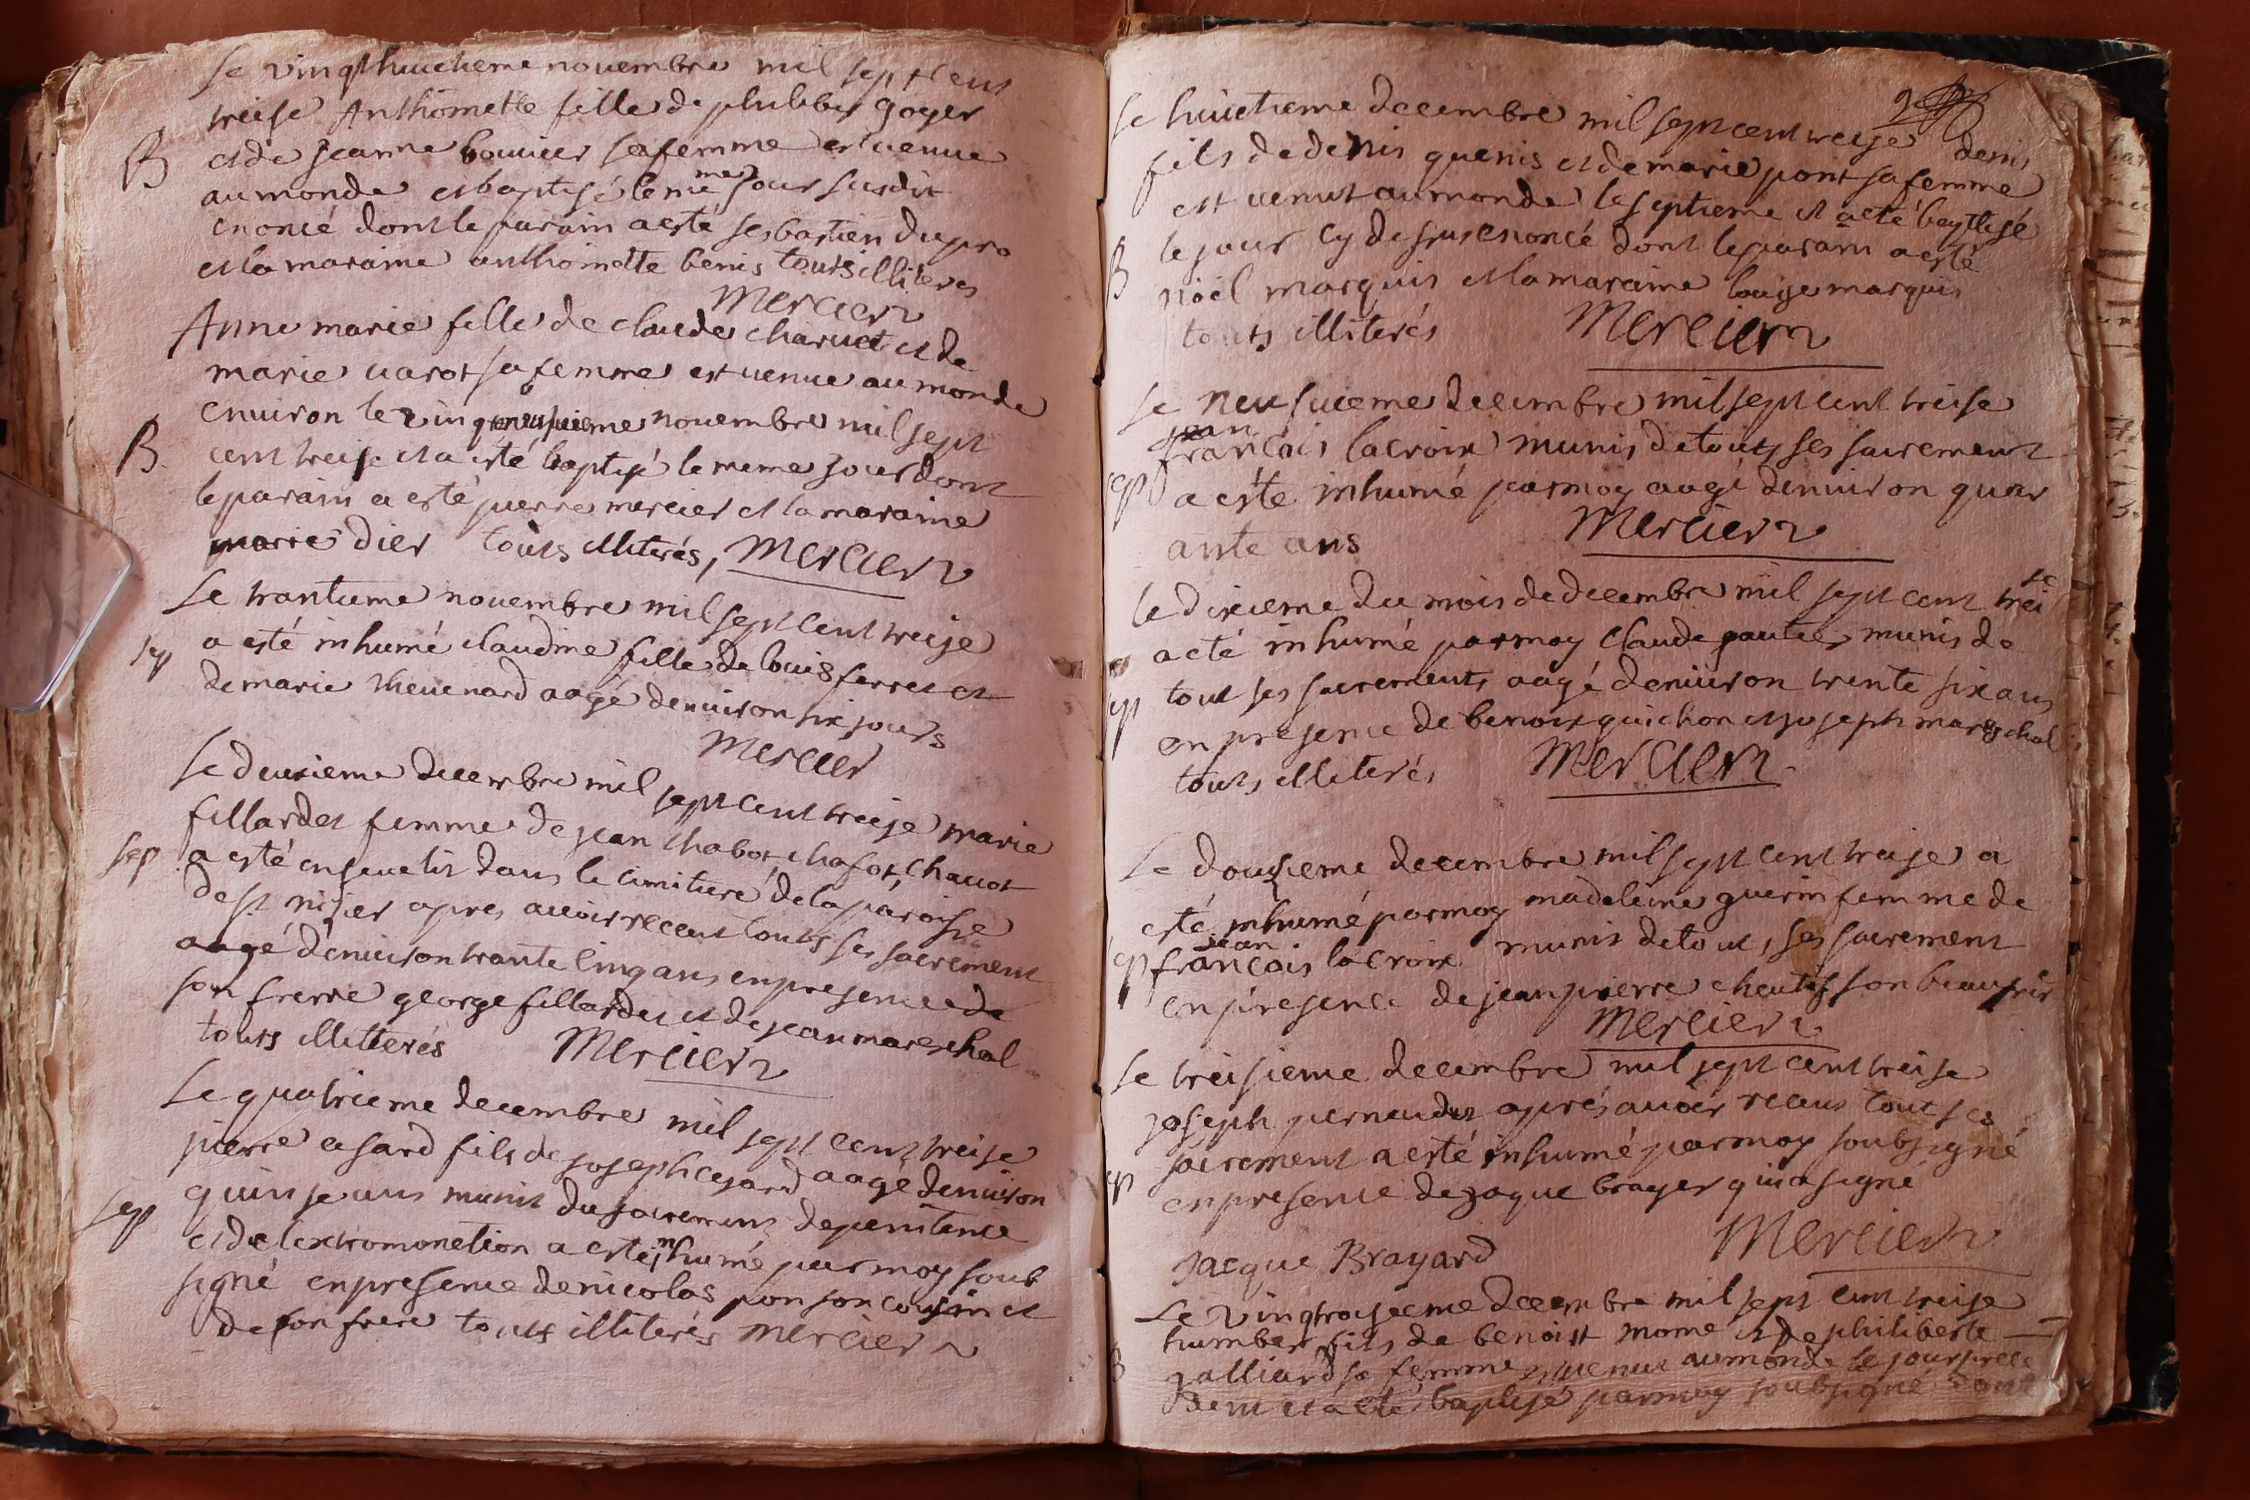 Le vingthuictieme novembre mil sept cent
treise Anthomette fille de philiber goyer
B et de jeanne bouvier sa femme est venue
au monde et baptisé le meme jour susdit
enoncé dont le parain a esté sebastien dupro
et la maraine anthomette benis touts illiteres
Mercier
Anne marie fille de claude charuet et de
marie varot sa femme est venue au monde
environ le vingtneusieme novembre mil sept
B. cent treise et a esté baptisé le meme jour dont
le parain a esté pierre mercier et la maraine
marie dier touts illiterés, Mercier
Le trantieme novembre mil sept cent treise
a esté inhumé claudine fille de louis ferret et
sep de marie thevenard aagé denuiron six jours
Mercier
Le deuxieme decembre mil sept cent treise marie
fillardet femme de jean chabot, chafot, chavot
sep a esté ensevelit dans le cimitiere de la paroisse
de st nisier apres avoir receut touts ses sacrement
aagé denuiron trante cinq ans en presence de
son frerre george fillardet et de jean mareschal
touts illitterés Mercier
Le quatrieme decembre mil sept cent treise
pierre casard fils de joseph casard aagé denuiron
sep quinse ans munit du sacrement de penitence
et de lextromonction a esté inhumé par moy soub
signé en presence de nicolas pon son cousin et
de son frere touts illiterés Mercier
Le huictieme decembre mil sept cent treise denis
fils de denis quenis et de marie pont sa femme
est venut au monde le septieme et a eté baptisé
B le jour cy dessus enoncé dont le parain a esté
noël marquis et la maraine louise marquis
touts illiterés Mercier
Le neufvieme decembre mil sept cent treise
jean
francois lacroix munis de touts ses sacrement
sep a esté inhumé par moy aagé denuiron quar
ante ans Mercier
le dixieme du mois de decembre mil sept cent treise
a eté inhumé par moy claude pautier munis de
sep tout ses sacrements aagé denuiron trente six ans
en presence de benoit guichon et joseph mareschal
touts illiterés Mercier
Le dousieme decembre mil sept cent treise a
esté inhumé par moy madeleine guerin femme de
jean
sep francois lacroix munis de tout, ses sacrement
en presence de jean pierre cheutif son beaufrir
Mercier
Le treisieme decembre mil sept cent treise
joseph pernaudet aprés avoir receus tout ses
sep sacrement a esté inhumé par moy soubsigné
en presence de jaque brayer qui a signé
Jacque Brayard Mercier
Le vingtroisieme decembre mil sept cent treise
humber fils de benoist momé et de philiberte
B galliard sa femme est venut au monde le jour prece
dent et a eté baptisé par moy soubsigné dont